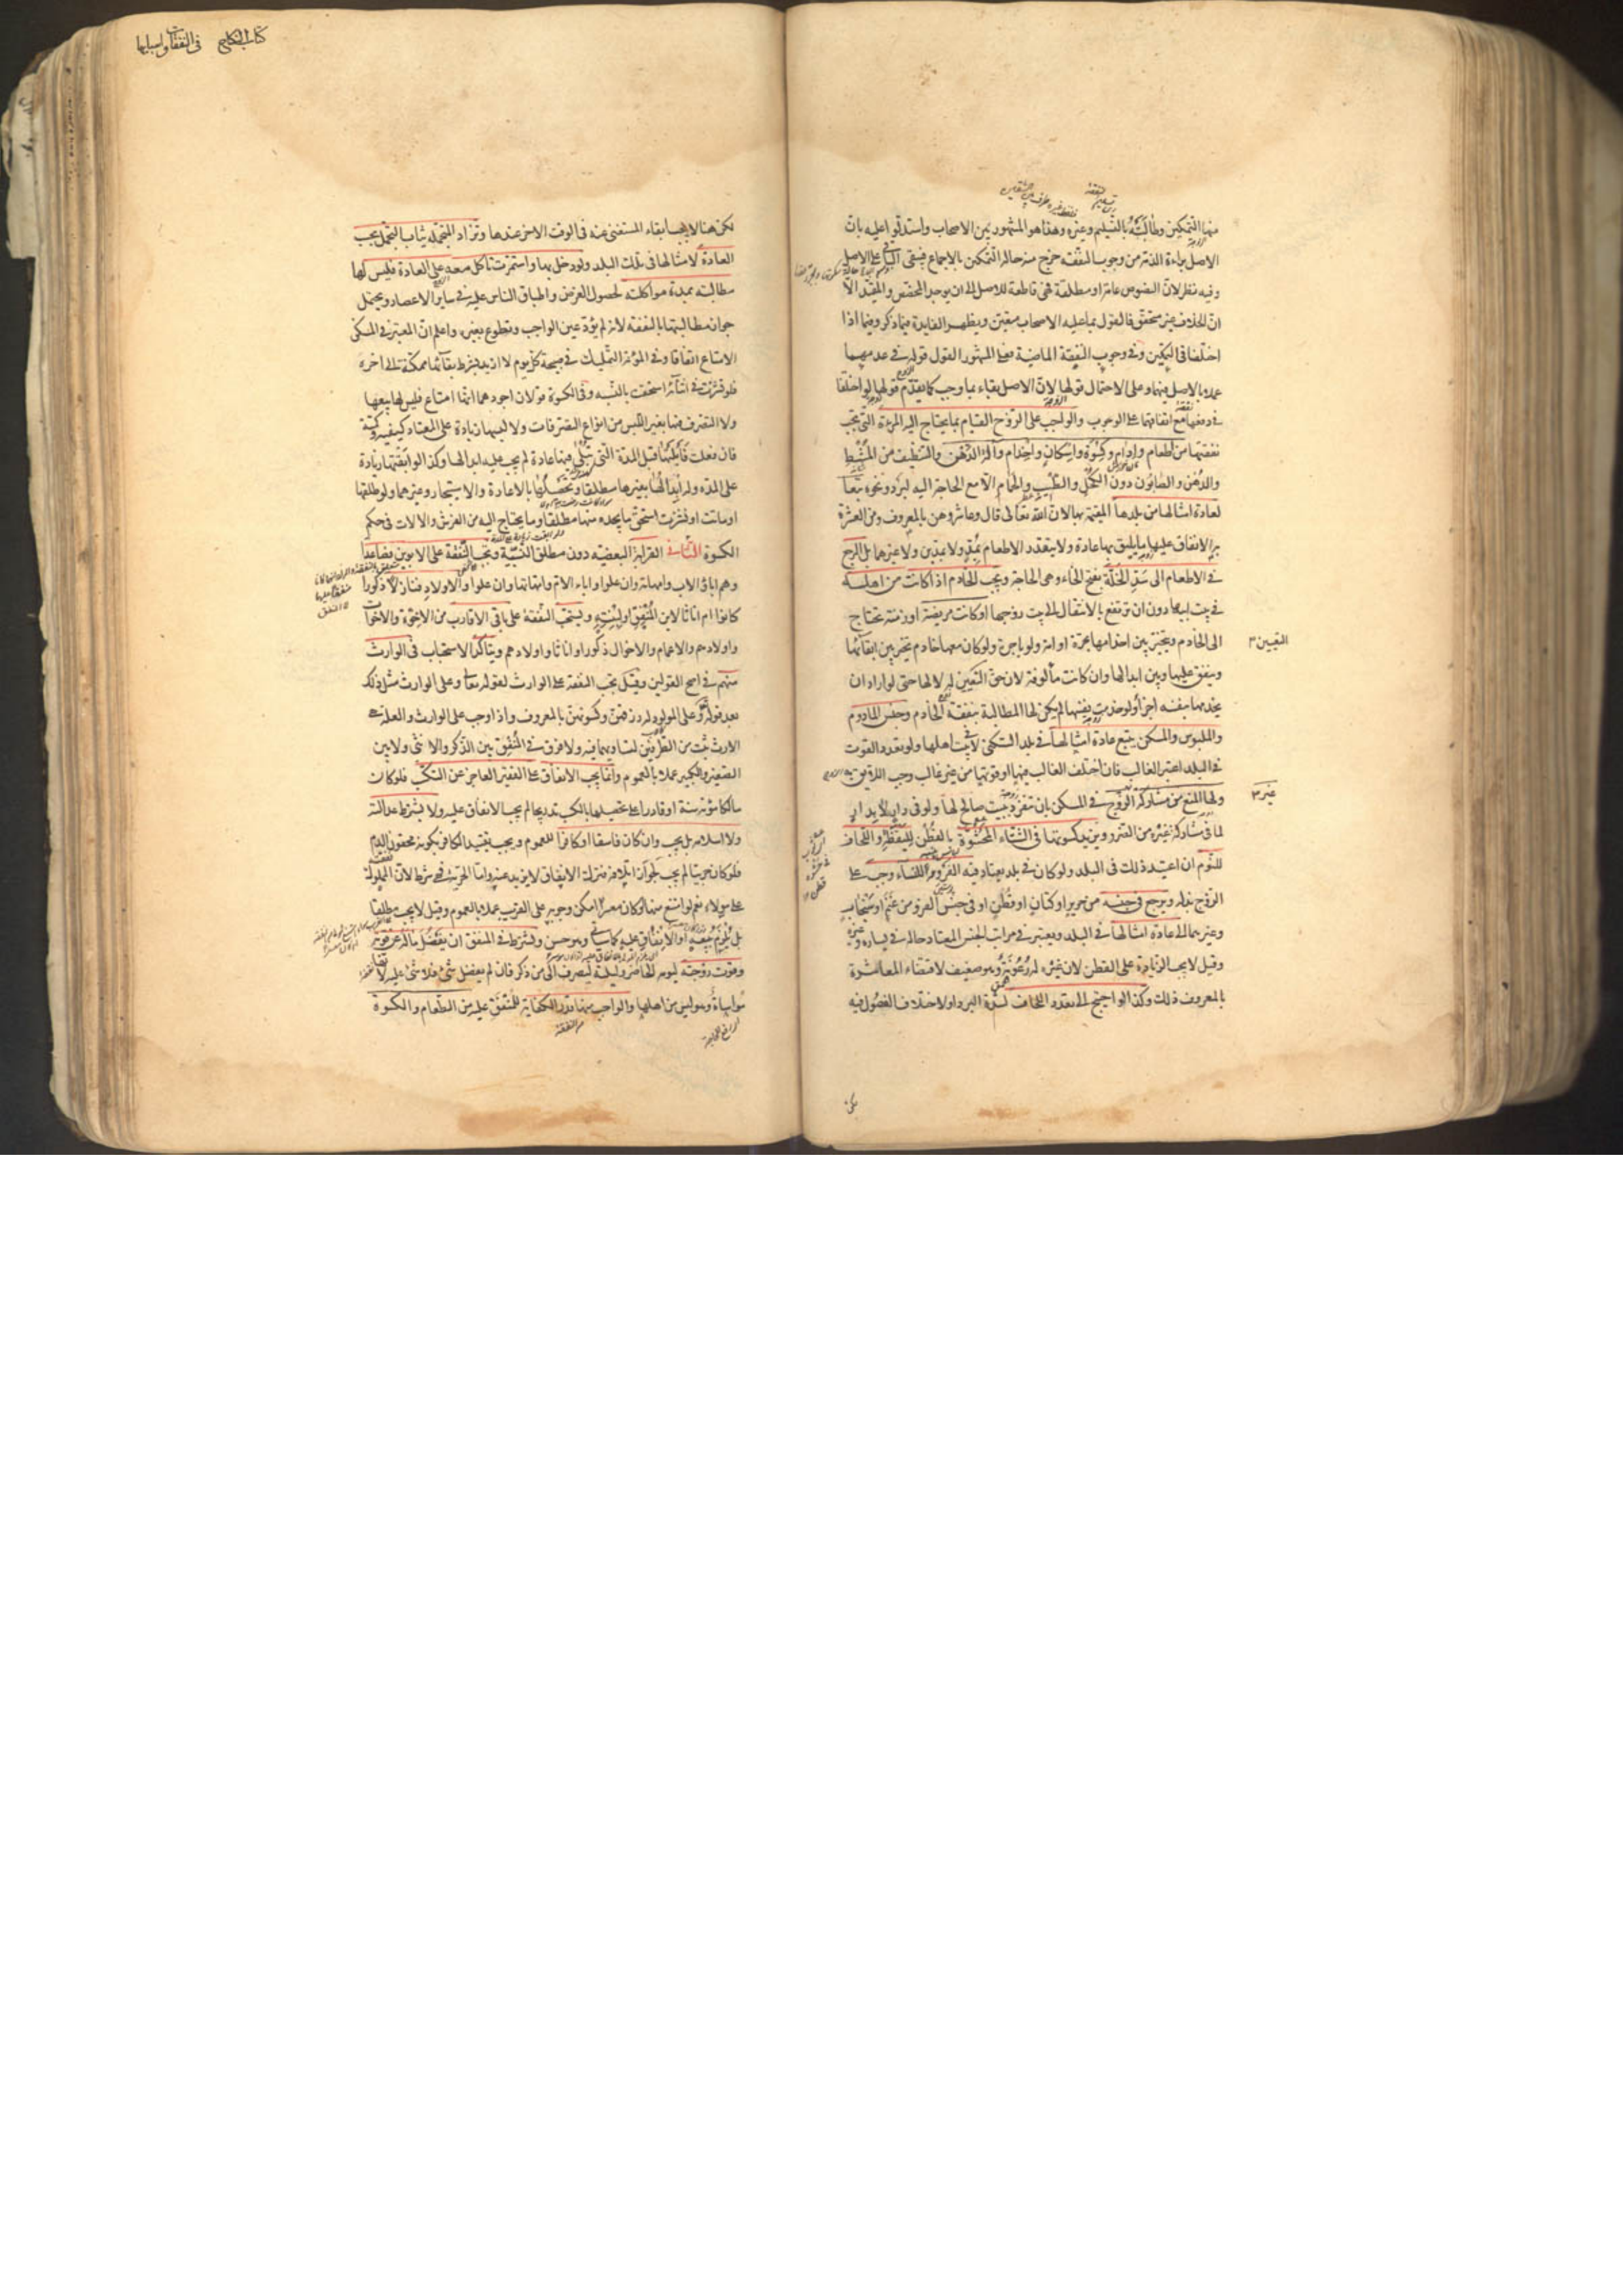 منها التمكين وطالبته بالتسليم وغيره وهذا هو المشهور بين الاصحاب واستدلوا عليه بان
الاصل براءة الذمة من وجوب النفقة خرج منه حالة التمكين بالاجماع فيبقى الباقي على الاصل
وفيه نظر لان النصوص عامة او مطلقة فهي قاطعة للاصل الى ان يوجد المخصص والمقيد الا
ان الخلاف غير متحقق فالقول بما عليه الاصحاب متعين ويظهر الفايدة فيما ذكر وفيما اذا
اختلفا في التمكين وفي وجوب النفقة الماضية فعلى المشهور القول قوله في عدمهما
عملا بالاصل فيهما وعلى الاحتمال قولها لان الاصل بقاء ما وجب كما يقدم قولها لو اختلفا
في دفعها مع اتفاقهما على الوجوب والواجب على الزوج القيام بما يحتاج اليه المرءة التي تجب
نفقتها من طعام وادام وكسوة واسكان واخدام وآلة الدهن والتنظيف من المشط
والدهن والصابون دون الكحل والطيب والحمام الا مع الحاجة اليه لبرد ونحوه تبعا
لعادة امثالها من بلدها المقيمة بها لان الله تعالى قال وعاشروهن بالمعروف ومن العشرة
به الانفاق عليها بما يليق بها عادة ولا يتقدر الاطعام بمد ولا بمدين ولا غيرهما بل المرجع
في الاطعام الى سد الخلة بفتح الخاء وهي الحاجة ويجب الخادم اذا كانت من اهله
في بيت ابيها دون ان ترتفع بالانتقال الى بيت زوجها او كانت مريضة او زمنة تحتاج
الى الخادم ويتخير بين اخدامها بحرة او امة ولو باجرة ولو كان معها خادم تخير بين ابقائها
التعيين ٣
وينفق عليها وبين ابدالها وان كانت مألوفة لان حق التعيين له لا لها حتى لو اراد ان
يخدمها بنفسه اجزأ ولو خدمت نفسها لم يكن لها المطالبة بنفقة الخادم وجنس المادوم
والملبوس والمسكن يتبع عادة امثالها في بلد السكنى لا في بيت اهلها ولو تعدد القوت
في البلد اعتبر الغالب فان اختلف الغالب فيها او قوتها من غير غالب وجب اللايق به
ولها المنع من مشاركة غير الزوج في المسكن بان تنفرد ببيت صالح لها ولو في دار لا بدار
غير ٣
لما في مشاركة غيره من الضرر ويزيد كسوتها في الشتاء المحشوة بالقطن لليقظة واللحاف
للنوم ان اعتيد ذلك في البلد ولو كان في بلد يعتاد فيه الفرو للنساء وجب على
الزوج بذله ويرجع في جنسه من حرير او كتان او قطن او في جنس الفرو من غنم او سنجاب
وغيرهما الى عادة امثالها في البلد ويعتبر في مراتب الجنس المعتاد حاله في يساره وغيره
وقيل لا يجب الزيادة على القطن لان غيره رعونة وهو ضعيف لاقتضاء المعاشرة
بالمعروف ذلك وكذا لو احتيج الى تعدد اللحاف لشدة البرد او لاختلاف الفصول فيه
كتاب النكاح في النفقات واسبابها
لكن هنا لا يجب ابقاء المستغنى عنه في الوقت الاخر عندها وتزاد المتجملة ثياب التجمل بحسب
العادة لامثالها في تلك البلد ولو دخل بها واستمرت تأكل معه على العادة فليس لها
مطالبته بمدة مواكلته لحصول الغرض واطباق الناس عليه في ساير الاعصار ويحتمل
جواز مطالبتها بالنفقة لانه لم يؤد عين الواجب وتطوع بغيره واعلم ان المعتبر في المسكن
الامتاع اتفاقا وفي المؤنة التمليك في صبيحة كل يوم لا ازيد بشرط بقائها ممكنة الى اخره
فلو نشزت في اثنائه استحقت بالنسبة وفي الكسوة قولان اجودهما انها امتاع فليس لها بيعها
ولا التصرف فيها بغير اللبس من انواع التصرفات ولا لبسها زيادة على المعتاد كيفية وكمية
فان فعلت فابلتها قبل المدة التي تبلى فيها عادة لم يجب عليه ابدالها وكذا لو ابقتها زيادة
على المدة وله ابدالها بغيرها مطلقا وتحصيلها بالاعادة والاستيجار وغيرهما ولو طلقها
او ماتت او نشزت استحق ما يجده منها مطلقا وما يحتاج اليه من الفرش والالات في حكم
الكسوة الثاني القرابة البعضية دون مطلق النسبية وتجب النفقة على الابوين فصاعدا
وهم اباؤ الاب وامهاته وان علوا واباء الام وامهاتها وان علوا والاولاد فنازلا ذكورا
كانوا ام اناثا لابن المنفق او لبنته ويستحب النفقة على باقي الاقارب من الاخوة والاخوات
واولادهم والاعمام والاخوال ذكورا واناثا واولادهم ويتأكد الاستحباب في الوارث
منهم في اصح القولين وقيل تجب النفقة على الوارث لقوله تعالى وعلى الوارث مثل ذلك
بعد قوله وعلى المولود له رزقهن وكسوتهن بالمعروف واذا وجب على الوارث والعلة هي
الارث ثبت من الطرفين لتساويهما فيه ولا فرق في المنفق بين الذكر والانثى ولا بين
الصغير والكبير عملا بالعموم وانما يجب الانفاق على الفقير العاجز عن التكسب فلو كان
مالكا مؤنة سنة او قادرا على تحصيلها بالكسب تدريجا لم يجب الانفاق عليه ولا يشترط عدالته
ولا اسلامه بل يجب وان كان فاسقا او كافرا للعموم ويجب تقييد الكافر بكونه محقون الدم
فلو كان حربيا لم يجب لجواز اتلافه فترك الانفاق لا يزيد عنه واما الحرية فهي شرط لان المملوك نفقته
على مولاه نعم لو امتنع منها او كان معسرا امكن وجوبه على القريب عملا بالعموم وقيل لا يجب مطلقا
بل يلزم ببيعه او الانفاق عليه كما سياتي وهو حسن ويشترط في المنفق ان يفضل ماله عن قوته
وقوت زوجته ليومه الحاضر وليلته ليصرف الى من ذكر فان لم يفضل شئ فلا شئ عليه لانها
مواساة وهو ليس من اهلها والواجب منها قدر الكفاية للمنفق عليه من الطعام والكسوة